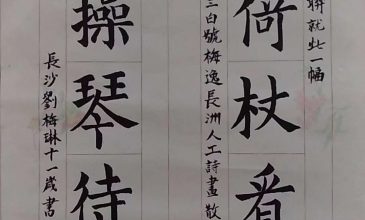 聯就此一幅
倚杖看
三白號梅逸長洲人工詩畫散
操琴待
長沙劉梅琳十一歲書